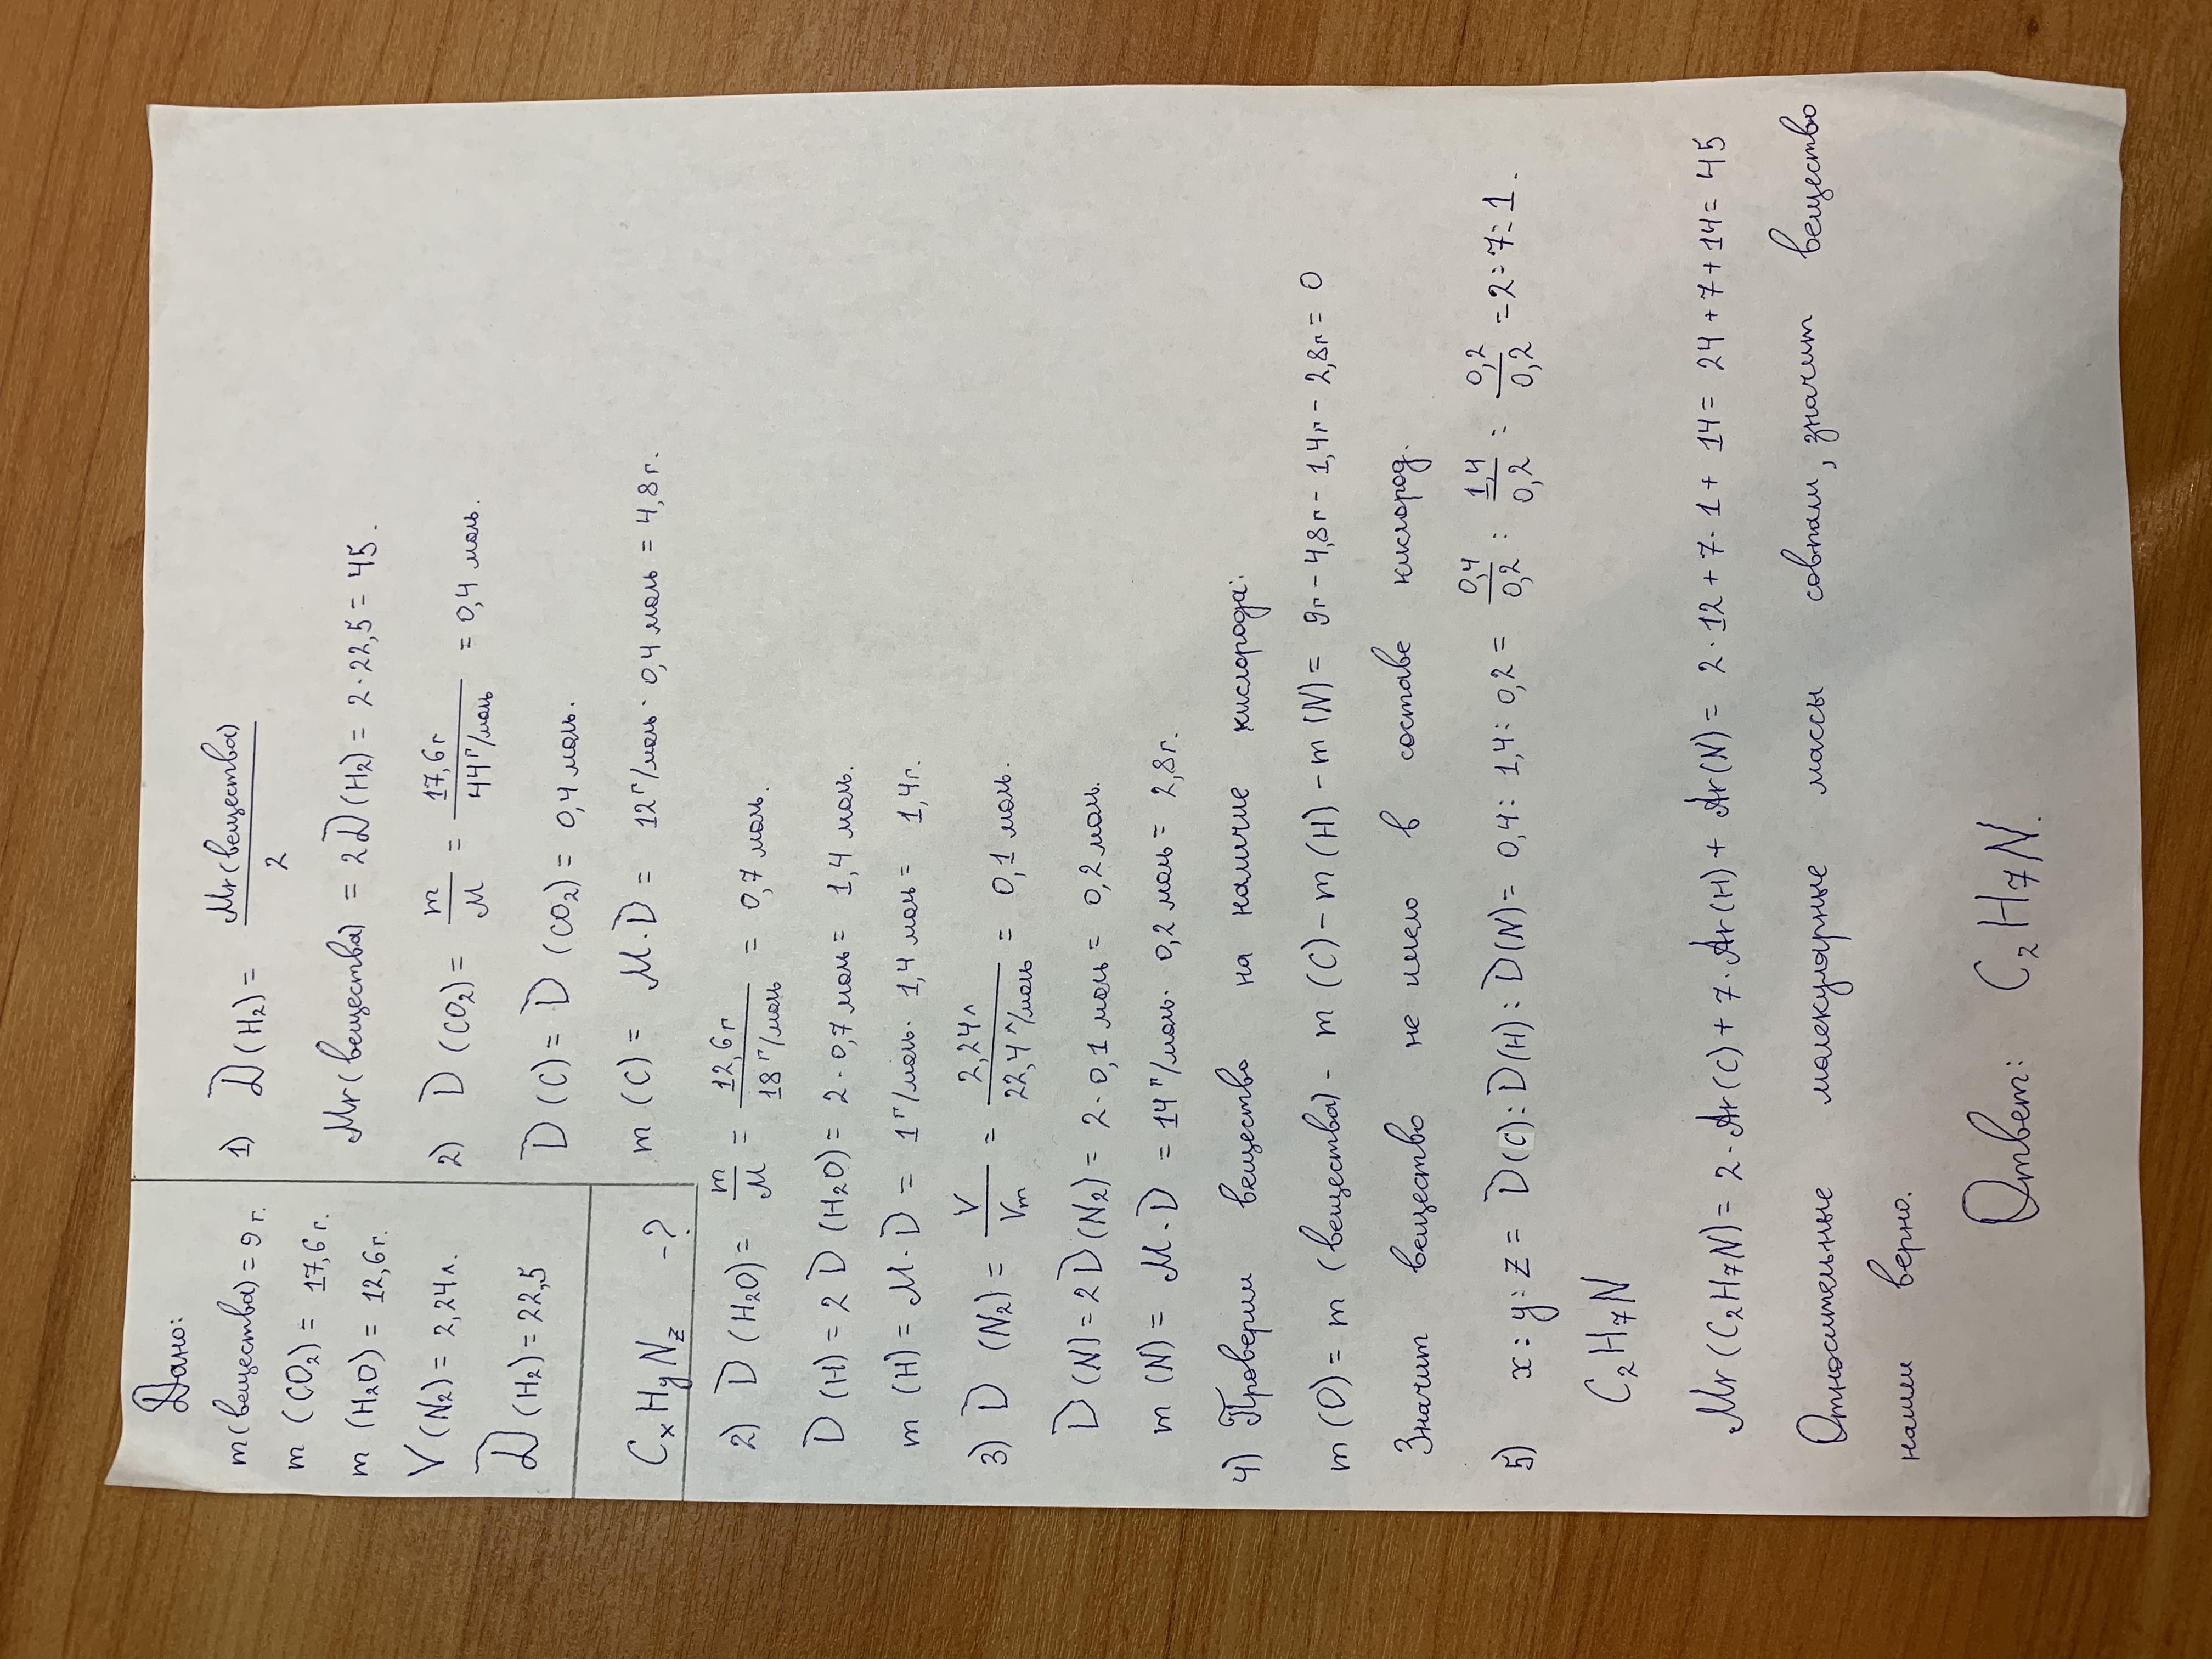 Дано:
m(вещества) = 9 г.
m (CO₂) = 17,6 г.
m (H₂O) = 12,6 г.
V (N₂) = 2,24 л.
D (H₂) = 22,5
CₓHᵧN_z - ?
1) D (H₂) = Mr(вещества) / 2
Mr(вещества) = 2D(H₂) = 2 · 22,5 = 45.
2) D (CO₂) = m / M = 17,6 г / 44 г/моль = 0,4 моль.
D (C) = D (CO₂) = 0,4 моль.
m (C) = M · D = 12 г/моль · 0,4 моль = 4,8 г.
2) D (H₂O) = m / M = 12,6 г / 18 г/моль = 0,7 моль.
D (H) = 2 D (H₂O) = 2 · 0,7 моль = 1,4 моль.
m (H) = M · D = 1 г/моль · 1,4 моль = 1,4 г.
3) D (N₂) = V / Vm = 2,24 л / 22,4 л/моль = 0,1 моль.
D (N) = 2 D (N₂) = 2 · 0,1 моль = 0,2 моль.
m (N) = M · D = 14 г/моль · 0,2 моль = 2,8 г.
4) Проверим вещество на наличие кислорода:
m (O) = m (вещества) - m (C) - m (H) - m (N) = 9 г - 4,8 г - 1,4 г - 2,8 г = 0
Значит вещество не имело в составе кислород.
5) x : y : z = D(C) : D(H) : D(N) = 0,4 : 1,4 : 0,2 = 0,4 / 0,2 : 1,4 / 0,2 : 0,2 / 0,2 = 2 : 7 : 1.
C₂H₇N
Mr (C₂H₇N) = 2 · Ar(C) + 7 · Ar(H) + Ar(N) = 2 · 12 + 7 · 1 + 14 = 24 + 7 + 14 = 45
Относительные молекулярные массы совпали, значит вещество
нашли верно.
Ответ: C₂H₇N.